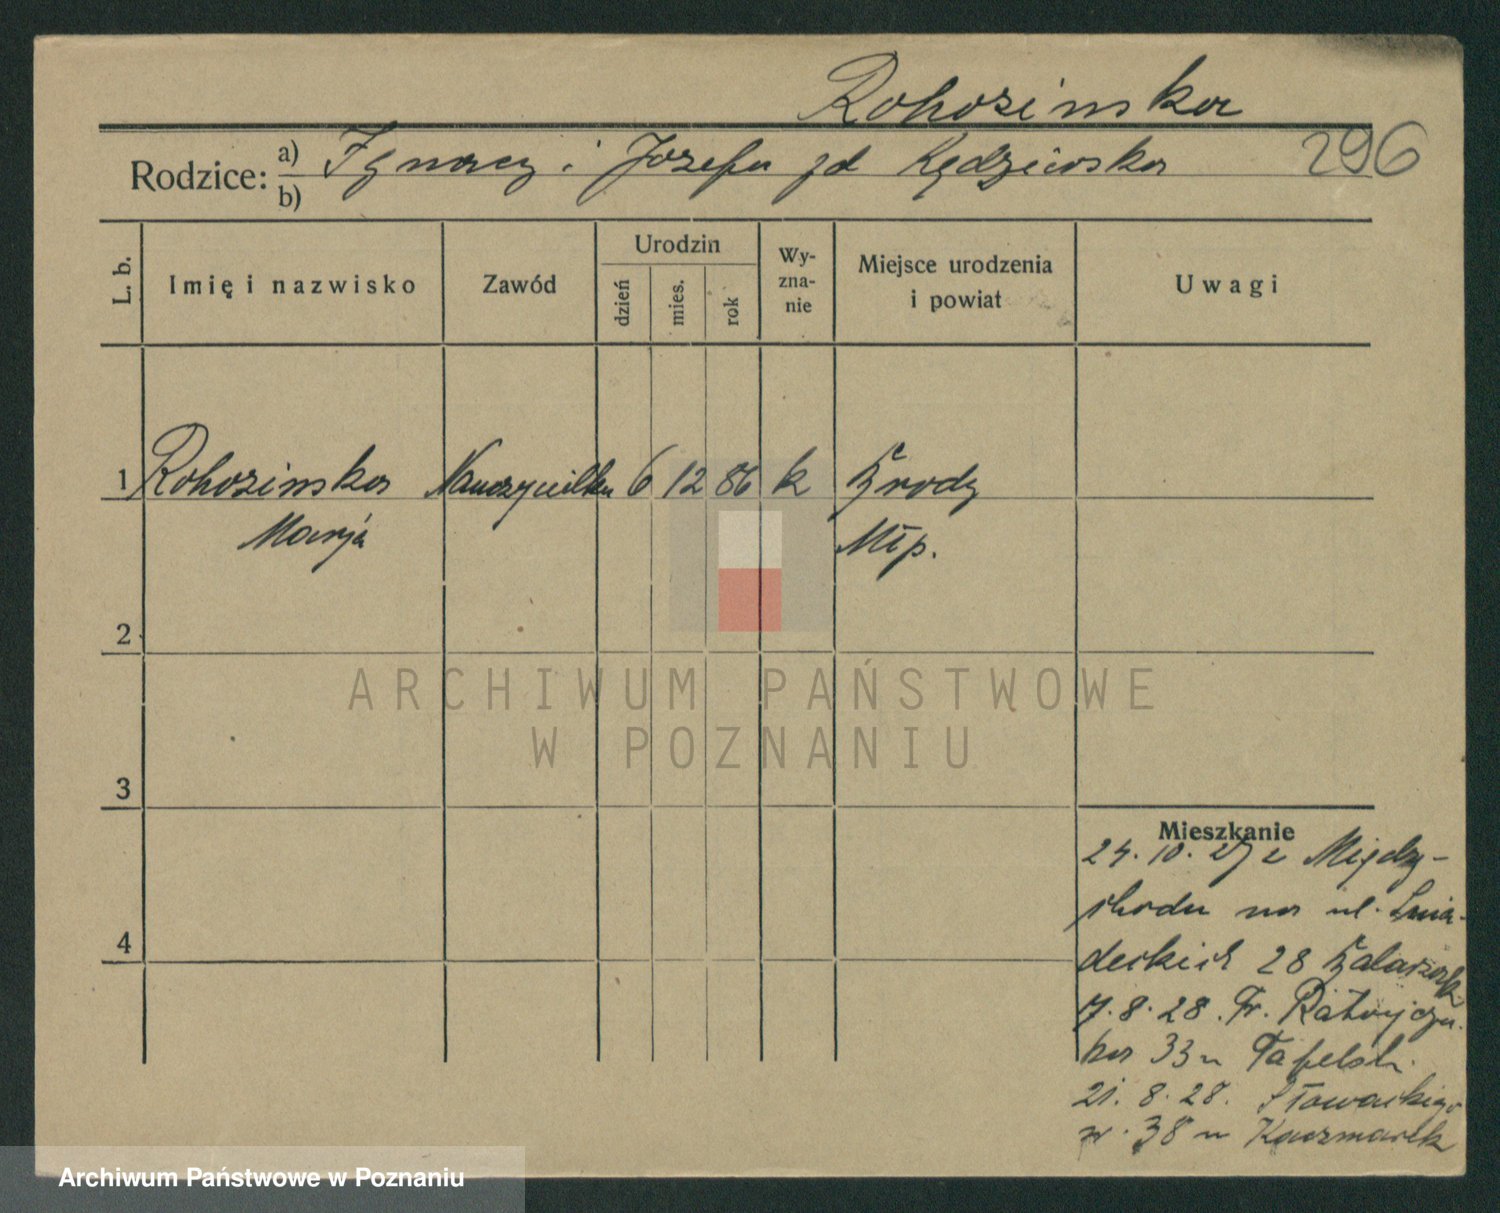 Rohozinska
Rodzice: a) Ignacy i Józefa zd Kędzierska 296
b)
L. b. Imię i nazwisko Zawód Urodzin dzień mies. rok Wyznanie Miejsce urodzenia i powiat Uwagi
1 Rohozinska Nauczycielka 6 12 86 k Brody
Marja Młp.
2
3
4
Mieszkanie
24. 10. 27 z Między-
chodu na ul. Śnia-
deckich 28
7. 8. 28. Fr. Ratajcza-
ka 33 u Tafelski.
21. 8. 28. Słowackiego
nr. 38 u Kaczmarek
ARCHIWUM PAŃSTWOWE
W POZNANIU
Archiwum Państwowe w Poznaniu